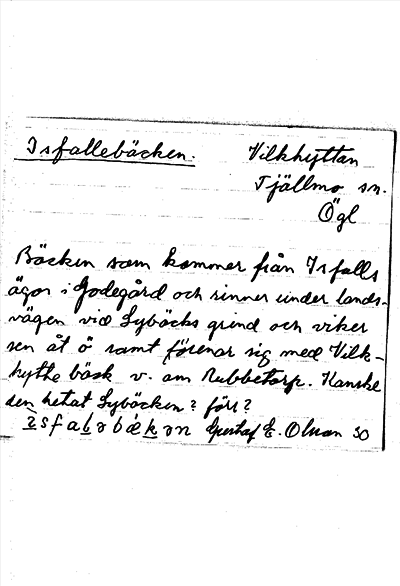 Isfallebäcken. Vilkhyttan
Tjällmo sn.
Ögl
Bäcken som kommer från Isfalls
ägor i Godegård och rinner under lands-
vägen vid Sybäcks grind och viker
sen åt ö samt förenar sig med Vilk-
hytte bäck v. om Rubbetorp. Kanske
den hetat Sybäcken? förr?
Gustaf E. Olson 30